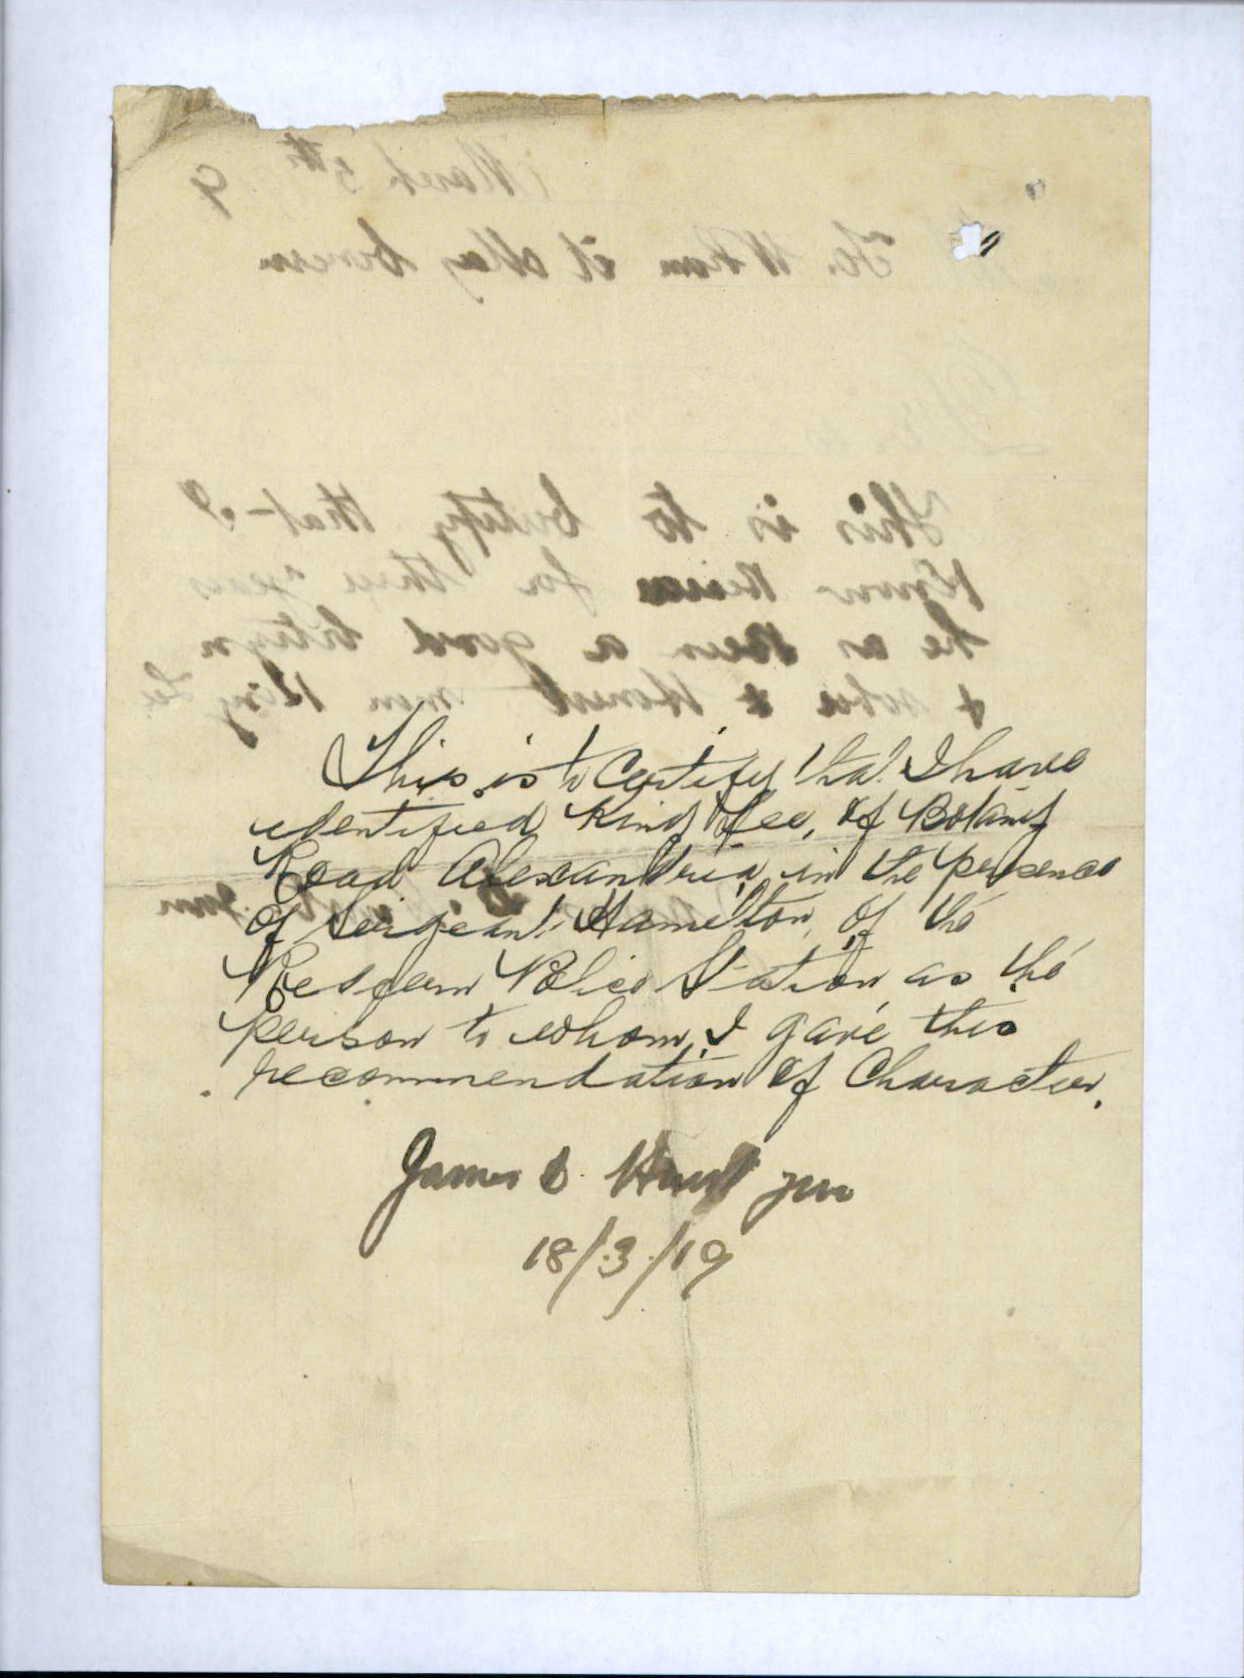 March 5th 9
To. Whom it May Concern
This is to Certify that - I
Known for three years
he as Been a good
& sober & Honest men King Lee
This is to Certify that I have
identified King Lee, of Botany
Road Alexandria in the presence
of Sergeant Hamilton, of the
Redfern Police Station as the
person to whom I gave this
recommendation of Character.
James C. Hunt jun
18/3/19